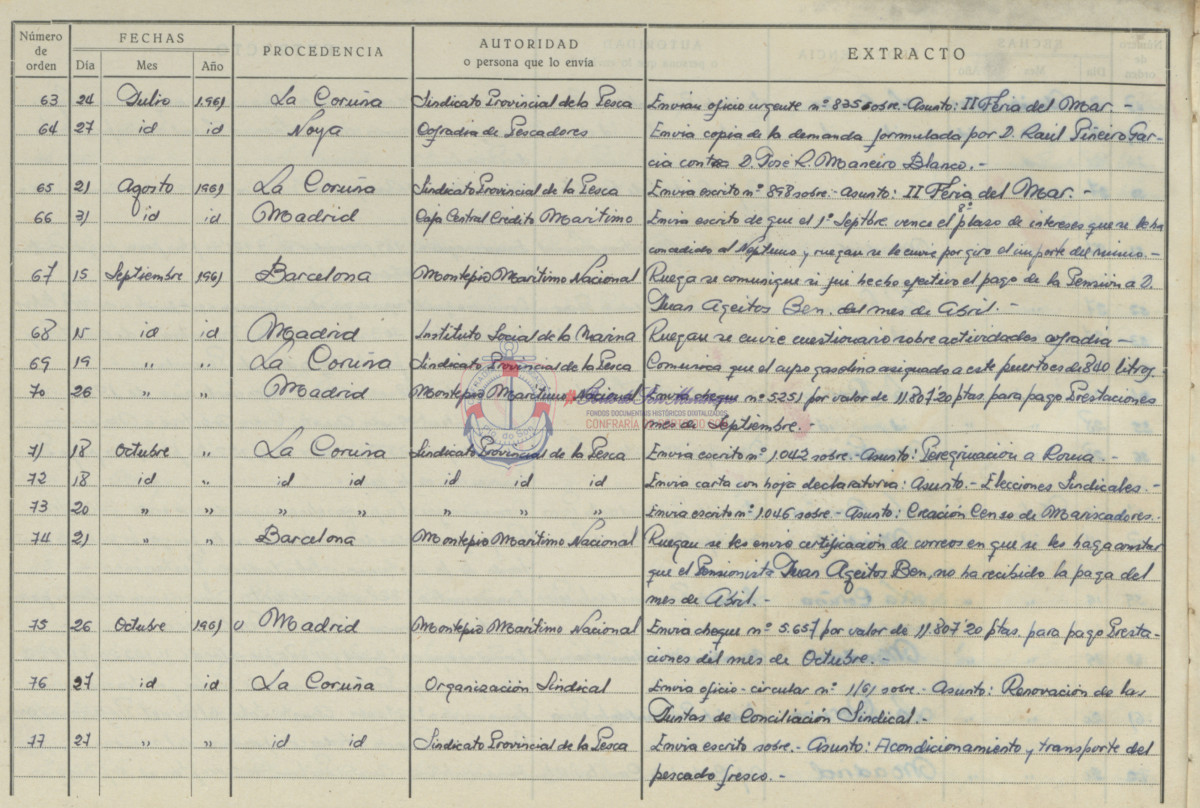 Número de orden FECHAS Día Mes Año PROCEDENCIA AUTORIDAD o persona que lo envía EXTRACTO
63 24 Julio 1.961 La Coruña Sindicato Provincial de la Pesca Envian oficio urgente nº 835 sobre.- Asunto: II Feria del Mar.-
64 27 id id Noya Cofradia de Pescadores Envia copia de la demanda formulada por D. Raúl Piñeiro Gar-
cia contra D. José R. Maneiro Blanco.-
65 21 Agosto 1961 La Coruña Sindicato Provincial de la Pesca Envia escrito nº 898 sobre.- Asunto: II Feria del Mar.-
66 31 id id Madrid Caja Central Crédito Marítimo Envia escrito de que el 1º Septbre. vence el 8º plazo de intereses que se le ha
concedido al Neptuno y ruegan se le envie por giro el importe del mismo.-
67 15 Septiembre 1961 Barcelona Montepio Marítimo Nacional Ruega se comunique si fué hecho efectivo el pago de la Pensión a D.
Juan Ageitos Ben, del mes de Abril.-
68 id id Madrid Instituto Social de la Marina Ruegan se envie cuestionario sobre actividades cofradia-
69 19 " " La Coruña Sindicato Provincial de la Pesca Comunica que el cupo gasolina asignado a este puerto es de 840 litros.
70 26 " " Madrid Montepio Marítimo Nacional Envia cheque nº 5251 por valor de 11.807'20 ptas. para pago Prestaciones
mes de Septiembre.-
FONDOS DOCUMENTAIS HISTÓRICOS DIXITALIZADOS
CONFRARÍA
71 18 Octubre " La Coruña Sindicato Provincial de la Pesca Envia escrito nº 1.042 sobre.- Asunto: Peregrinación a Roma.-
72 18 id " id id id id id Envia carta con hoja declaratoria: Asunto.- Elecciones Sindicales.-
73 20 " " " " " " " Envia escrito nº 1.046 sobre.- Asunto: Creación Censo de Mariscadores.-
74 21 " " Barcelona Montepio Marítimo Nacional Ruegan se les envie certificación de correos en que se les haga constar
que el Pensionista Juan Ageitos Ben, no ha recibido la paga del
mes de Abril.-
75 26 Octubre 1961 Madrid Montepio Marítimo Nacional Envia cheque nº 5.657 por valor de 11.807'20 ptas. para pago Presta-
ciones del mes de Octubre.-
76 27 id id La Coruña Organización Sindical Envia oficio-circular nº 1/61 sobre.- Asunto: Renovación de las
Juntas de Conciliación Sindical.-
77 27 " " id id Sindicato Provincial de la Pesca Envia escrito sobre.- Asunto: Acondicionamiento y transporte del
pescado fresco.-